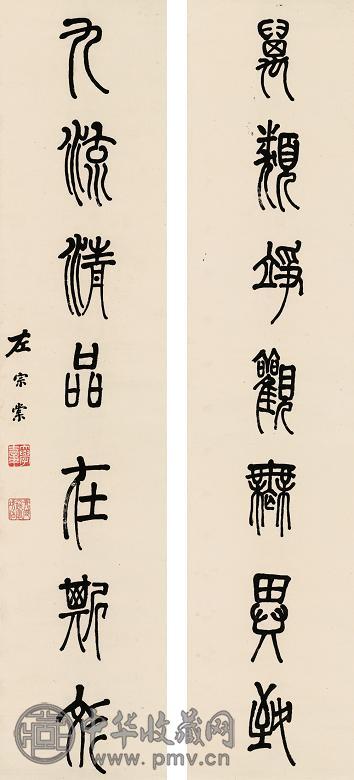 萬類竫觀無異致
九流清品在斯文
左宗棠
中华收藏网
www.pmv.cn